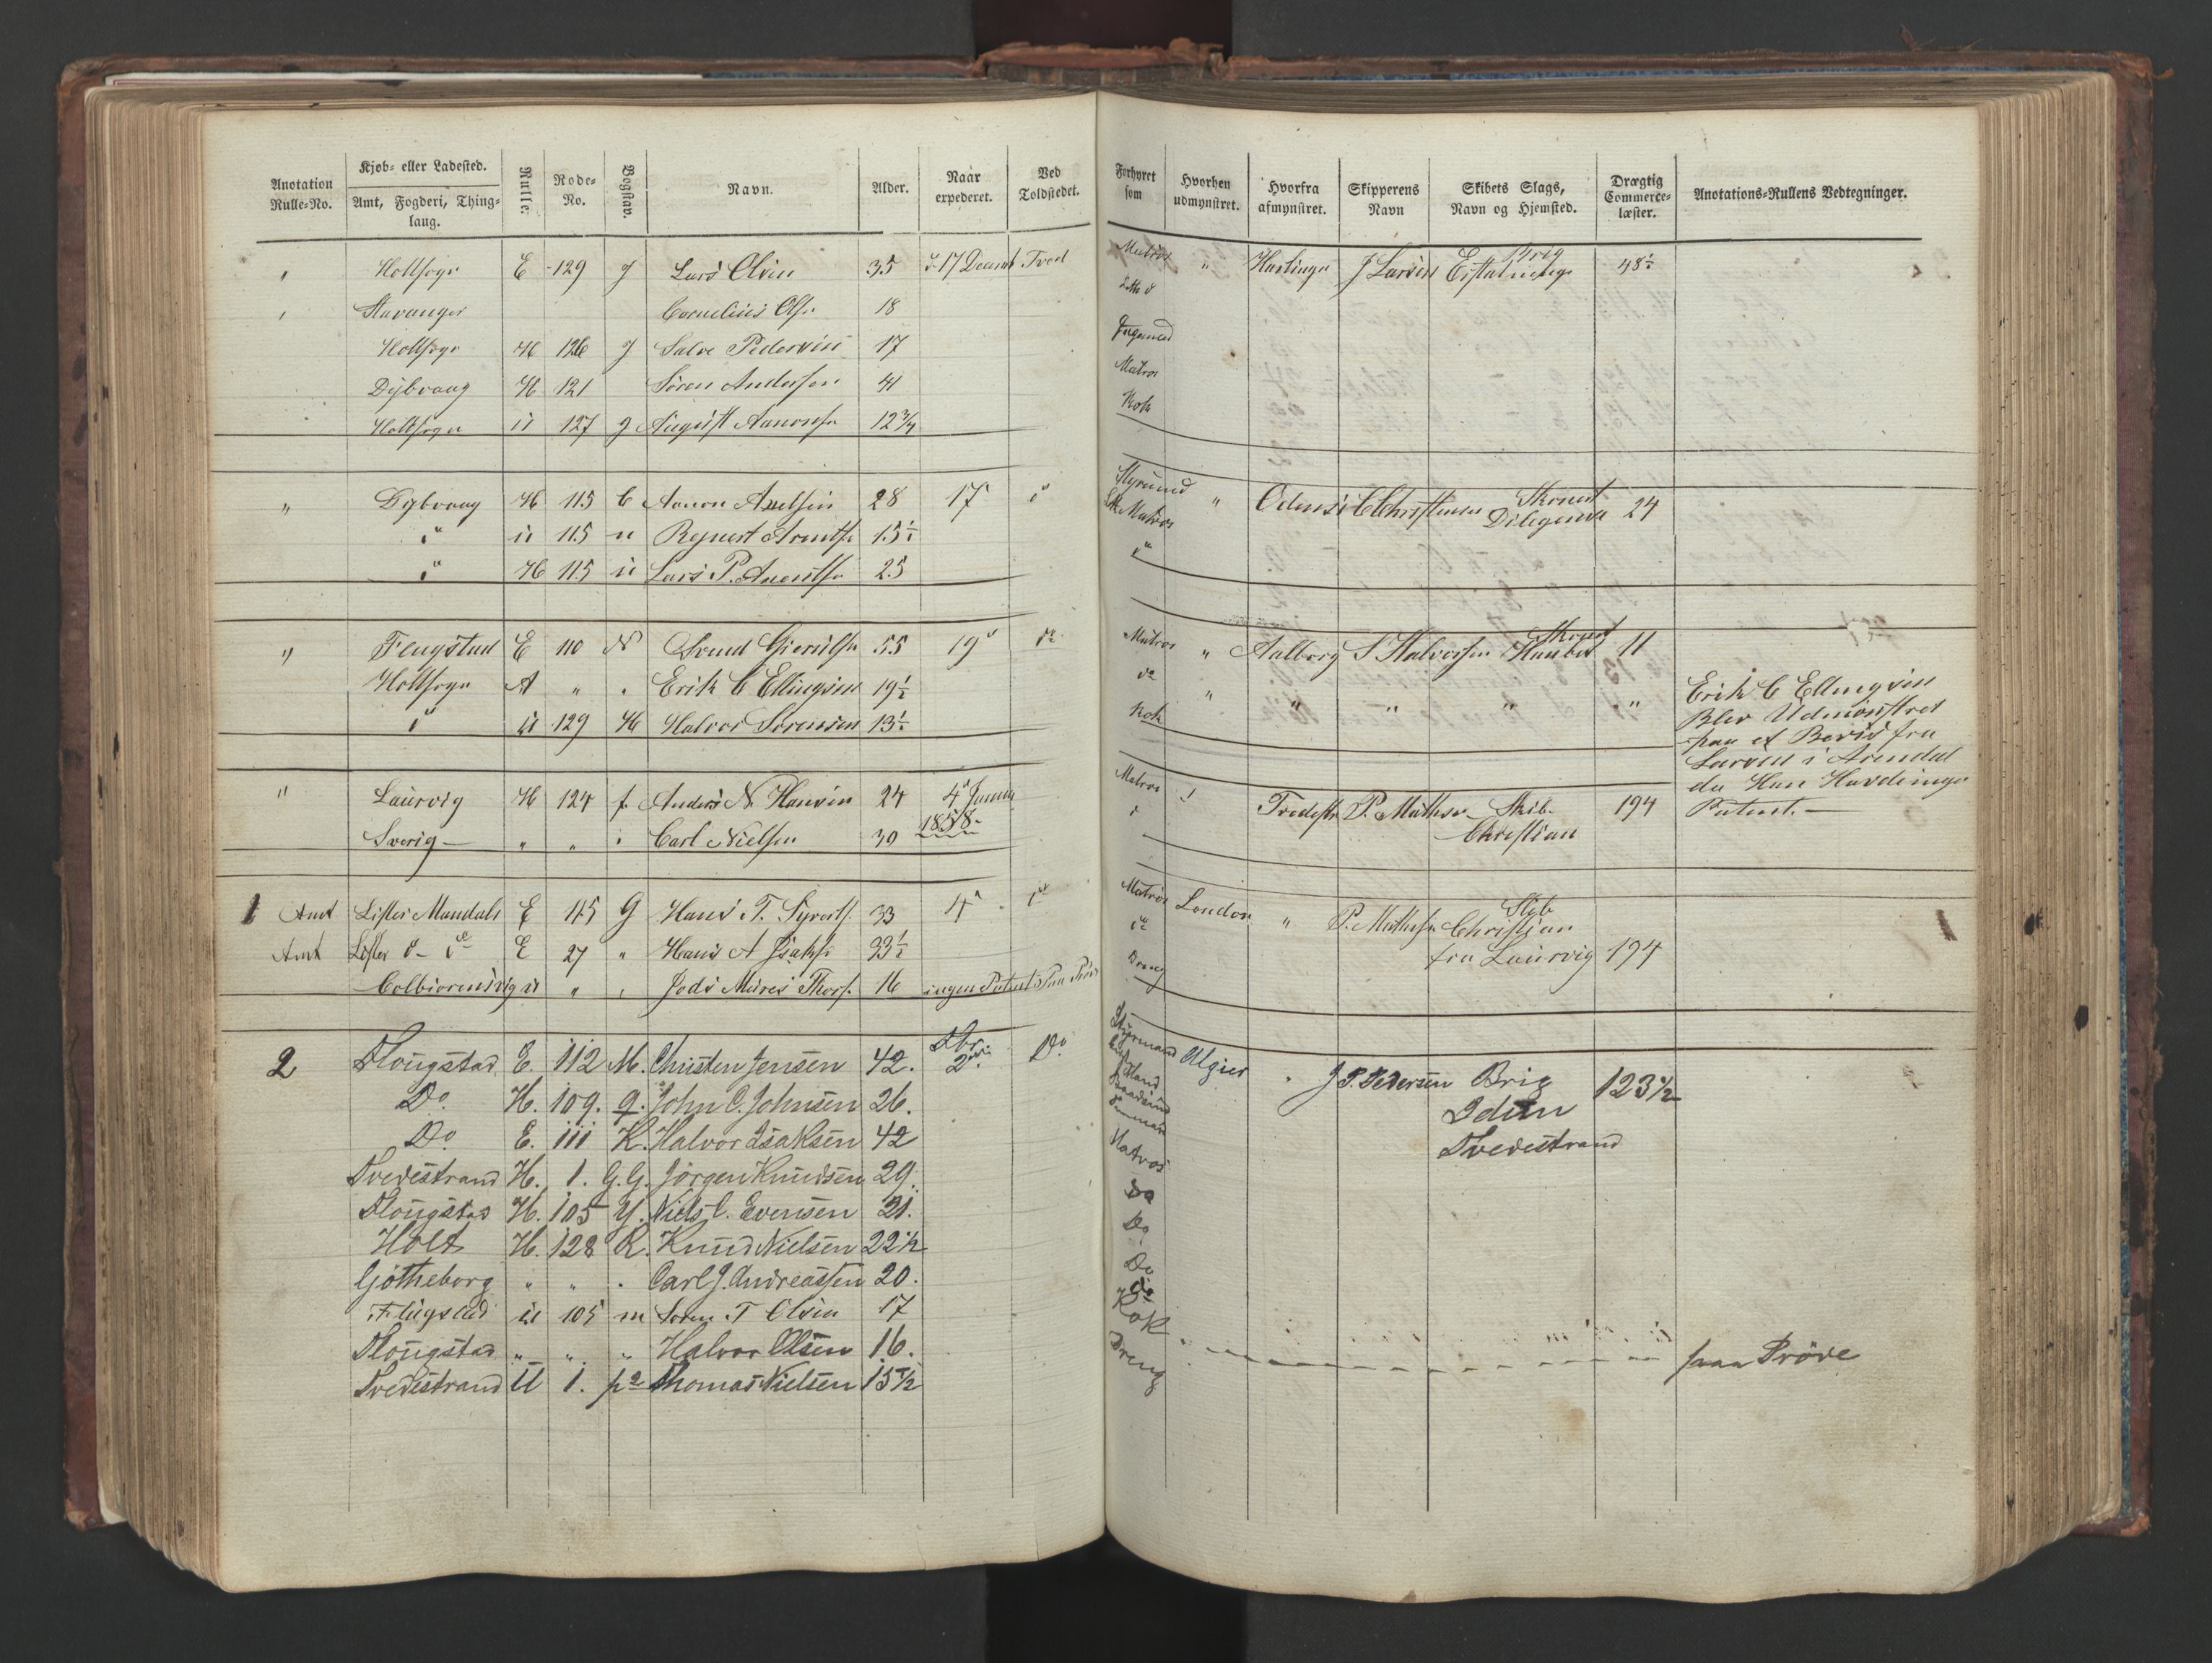 Anotation Rulle-No. Kjøb- eller Ladested. Amt, Fogderi, Thinglaug. Rulle. Rode-No. Bogstav. Navn. Alder. Naar expederet. Ved Toldstedet.
" Holtsogn E 129 J Lars Olsen 35 17 Decemb Tved
Stavanger Cornelius Ols. 18
Holtsogn H 126 J Salve Pedersen 17
Dybvaag H 121 Søren Andersen 41
Holtsogn U 127 g August Aanonsen 12 3/4
" Dybvaag H 115 C Aanon Axelsen 28 17 d
d U 115 " Rejnert Arentsen 15 1/2
d H 115 Lars P. Arentsen 25
" Flougstad E 110 N Svend Gjerulsen 55 19 do
Holtsogn A " " Erik C Ellingsen 19 1/2
d U 129 H Halvor Sørensen 13 1/2
" Laurvig H 124 f. Anders N. Hansen 24 4 Januar
Sverig " " " Carl Nielsen 30 1858
1 Amt Lister Mandals E 45 G Hans T. Syverts. 33 4 do
Amt Lister E 27 " Hans A Isaks. 33 1/2
Colbiørensvig " " 16 ingen Patent Paa Prøve
2 Flougstad E. 112 M. Christen Jensen 42. 2 Do
Do H. 109. q. John C. Johnsen 26.
Do E. 111 K. Halvor Isaksen 42
Tvedestrand H. 1. G.G. Jørgen Knudsen 29.
Flougstad H. 105 Y. Niels C. Evensen 21.
Holt H. 128 R. Knud Nielsen 22 1/2
Götheborg " " " Carl J. Andreassen 20.
Flougstad U 105 m Søren T Olsen 17
Flougstad " " " Halvor Olsen 16.
Tvedestrand U 1. Thomas Nielsen 15 1/2
Forhyret som Hvorhen udmynstret. Hvorfra afmynstret. Skipperens Navn Skibets Slags, Navn og Hjemsted. Drægtig Commerce-læster. Anotations-Rullens Vedtegninger.
Matros " Harlingen J Larsen Brig 48 1/2
Jugmand
Matros
Kok
Styrmand " Odense C Christensen Skonnert 24
Matros
d
Matros " Aalborg S Halvorsen Skonnert Haabet 11
do " " " " "
Kok
Erik C Ellingsen
Blev Udmønstret
paa et Beviis fra
Larsen i Arendal
da Han Havde ingen
Patent.
Matros Tvedestr P. Mathsen Skib Christian 194
Matros London " P. Mathsen Skib Christian
do fra Laurvig 194
Dreng
Styrmand Algier " J P. Pedersen Brig 123 1/2
Idun
Tvedestrand
Tømmermand
Matros
Do
Do
Do
do
Kok
Dreng
paa Prøve